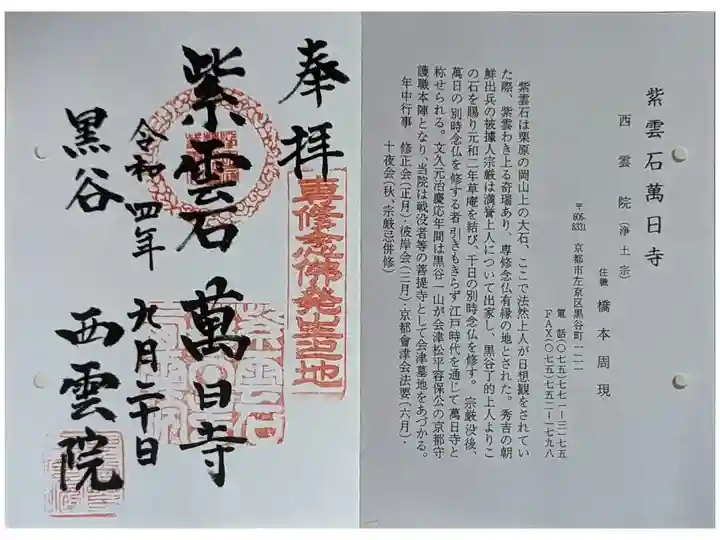 奉拝
専修念佛発生地
紫雲石 萬日寺
令和四年 九月二十日
黒谷 西雲院
紫雲石萬日寺
西雲院(浄土宗)
住職 橋本周現
〒606-8331 京都市左京区黒谷町一二一
電話(〇七五)七七一ー三一七五
FAX(〇七五)七五二ー一七九八
紫雲石は栗原の岡山上の大石、ここで法然上人が日想観をされてい
た際、紫雲わき上る奇瑞あり、専修念仏有縁の地とされた。秀吉の朝
鮮出兵の被擄人宗厳は満誉上人について出家し、黒谷了的上人よりこ
の石を賜り元和二年草庵を結び、千日の別時念仏を修す。宗厳没後、
萬日の別時念仏を修する者 引きもきらず江戸時代を通じて萬日寺と
称せられる。文久元治慶応年間は黒谷一山が会津松平容保公の京都守
護職本陣となり、当院は戦没者等の菩提寺として会津墓地をあづかる。
年中行事 修正会(正月)・彼岸会(三月)・京都會津会法要(六月)・
十夜会(秋、宗厳忌併修)